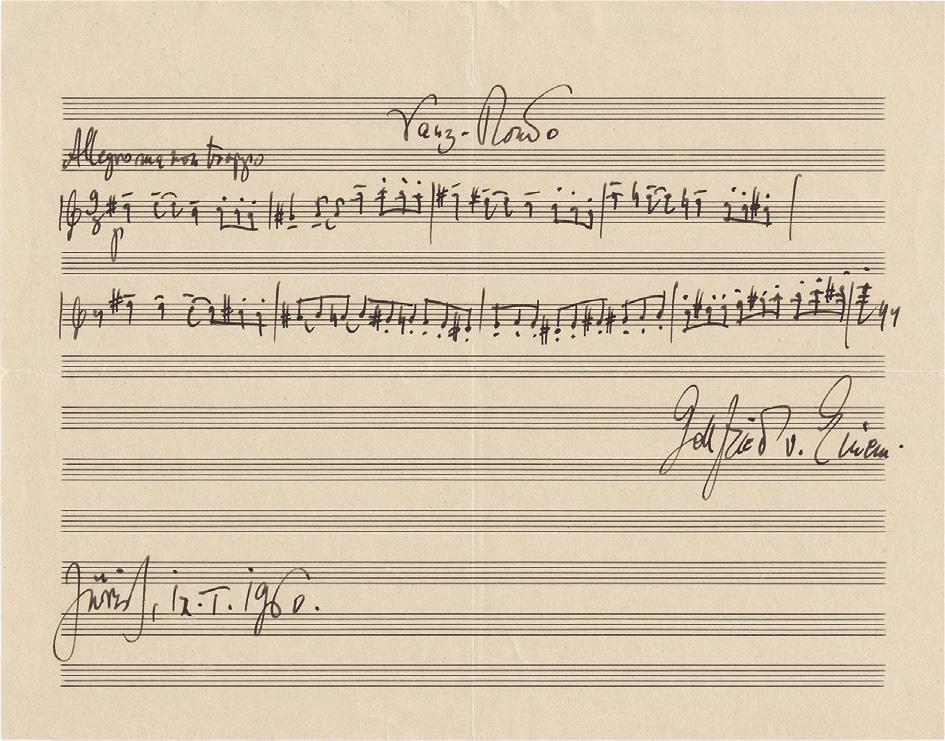 Tanz-Rondo
Allegro ma non troppo
9
8
p
Gottfried v. Einem.
Zürich, 12.I.1960.